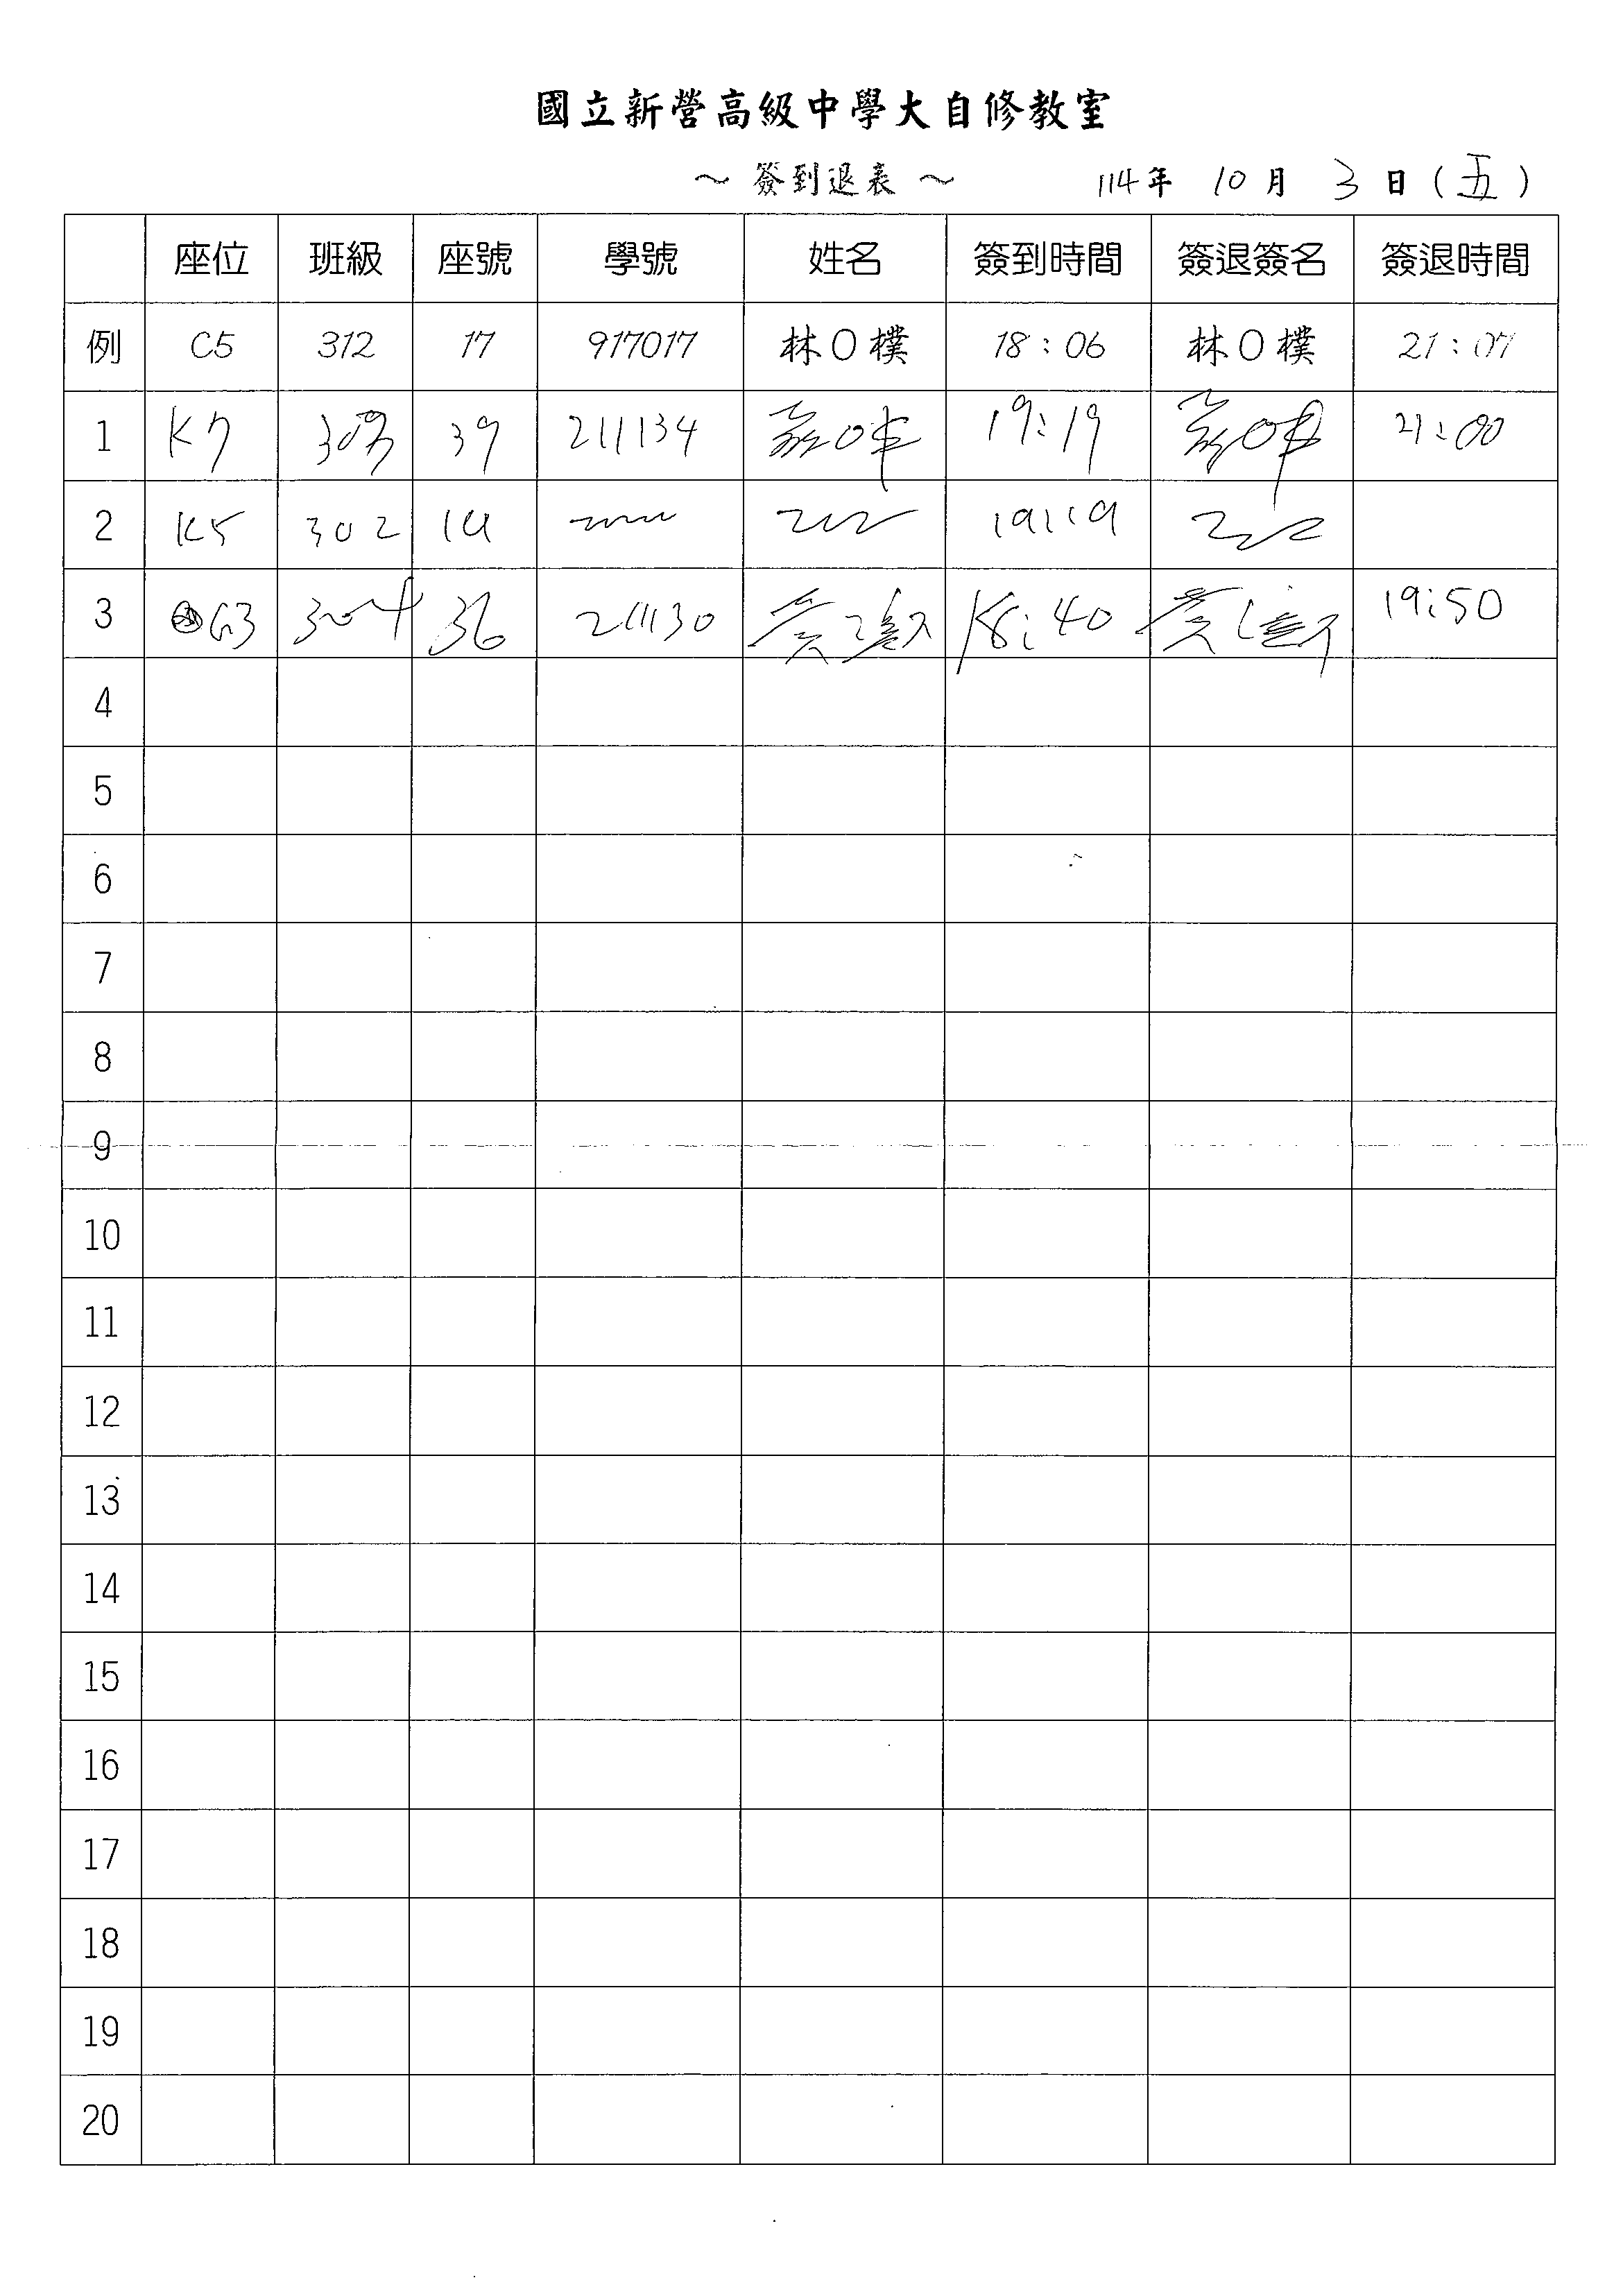 國立新營高級中學大自修教室
～ 簽到退表 ～ 114年 10月 3日(五)
座位 班級 座號 學號 姓名 簽到時間 簽退簽名 簽退時間
例 C5 312 17 917017 林O樸 18:06 林O樸 21:07
1 K7 39 211134 19:19 21:00
2 K5 302 14 19:19
3 G3 304 36 211130 18:40 19:50
4
5
6
7
8
9
10
11
12
13
14
15
16
17
18
19
20